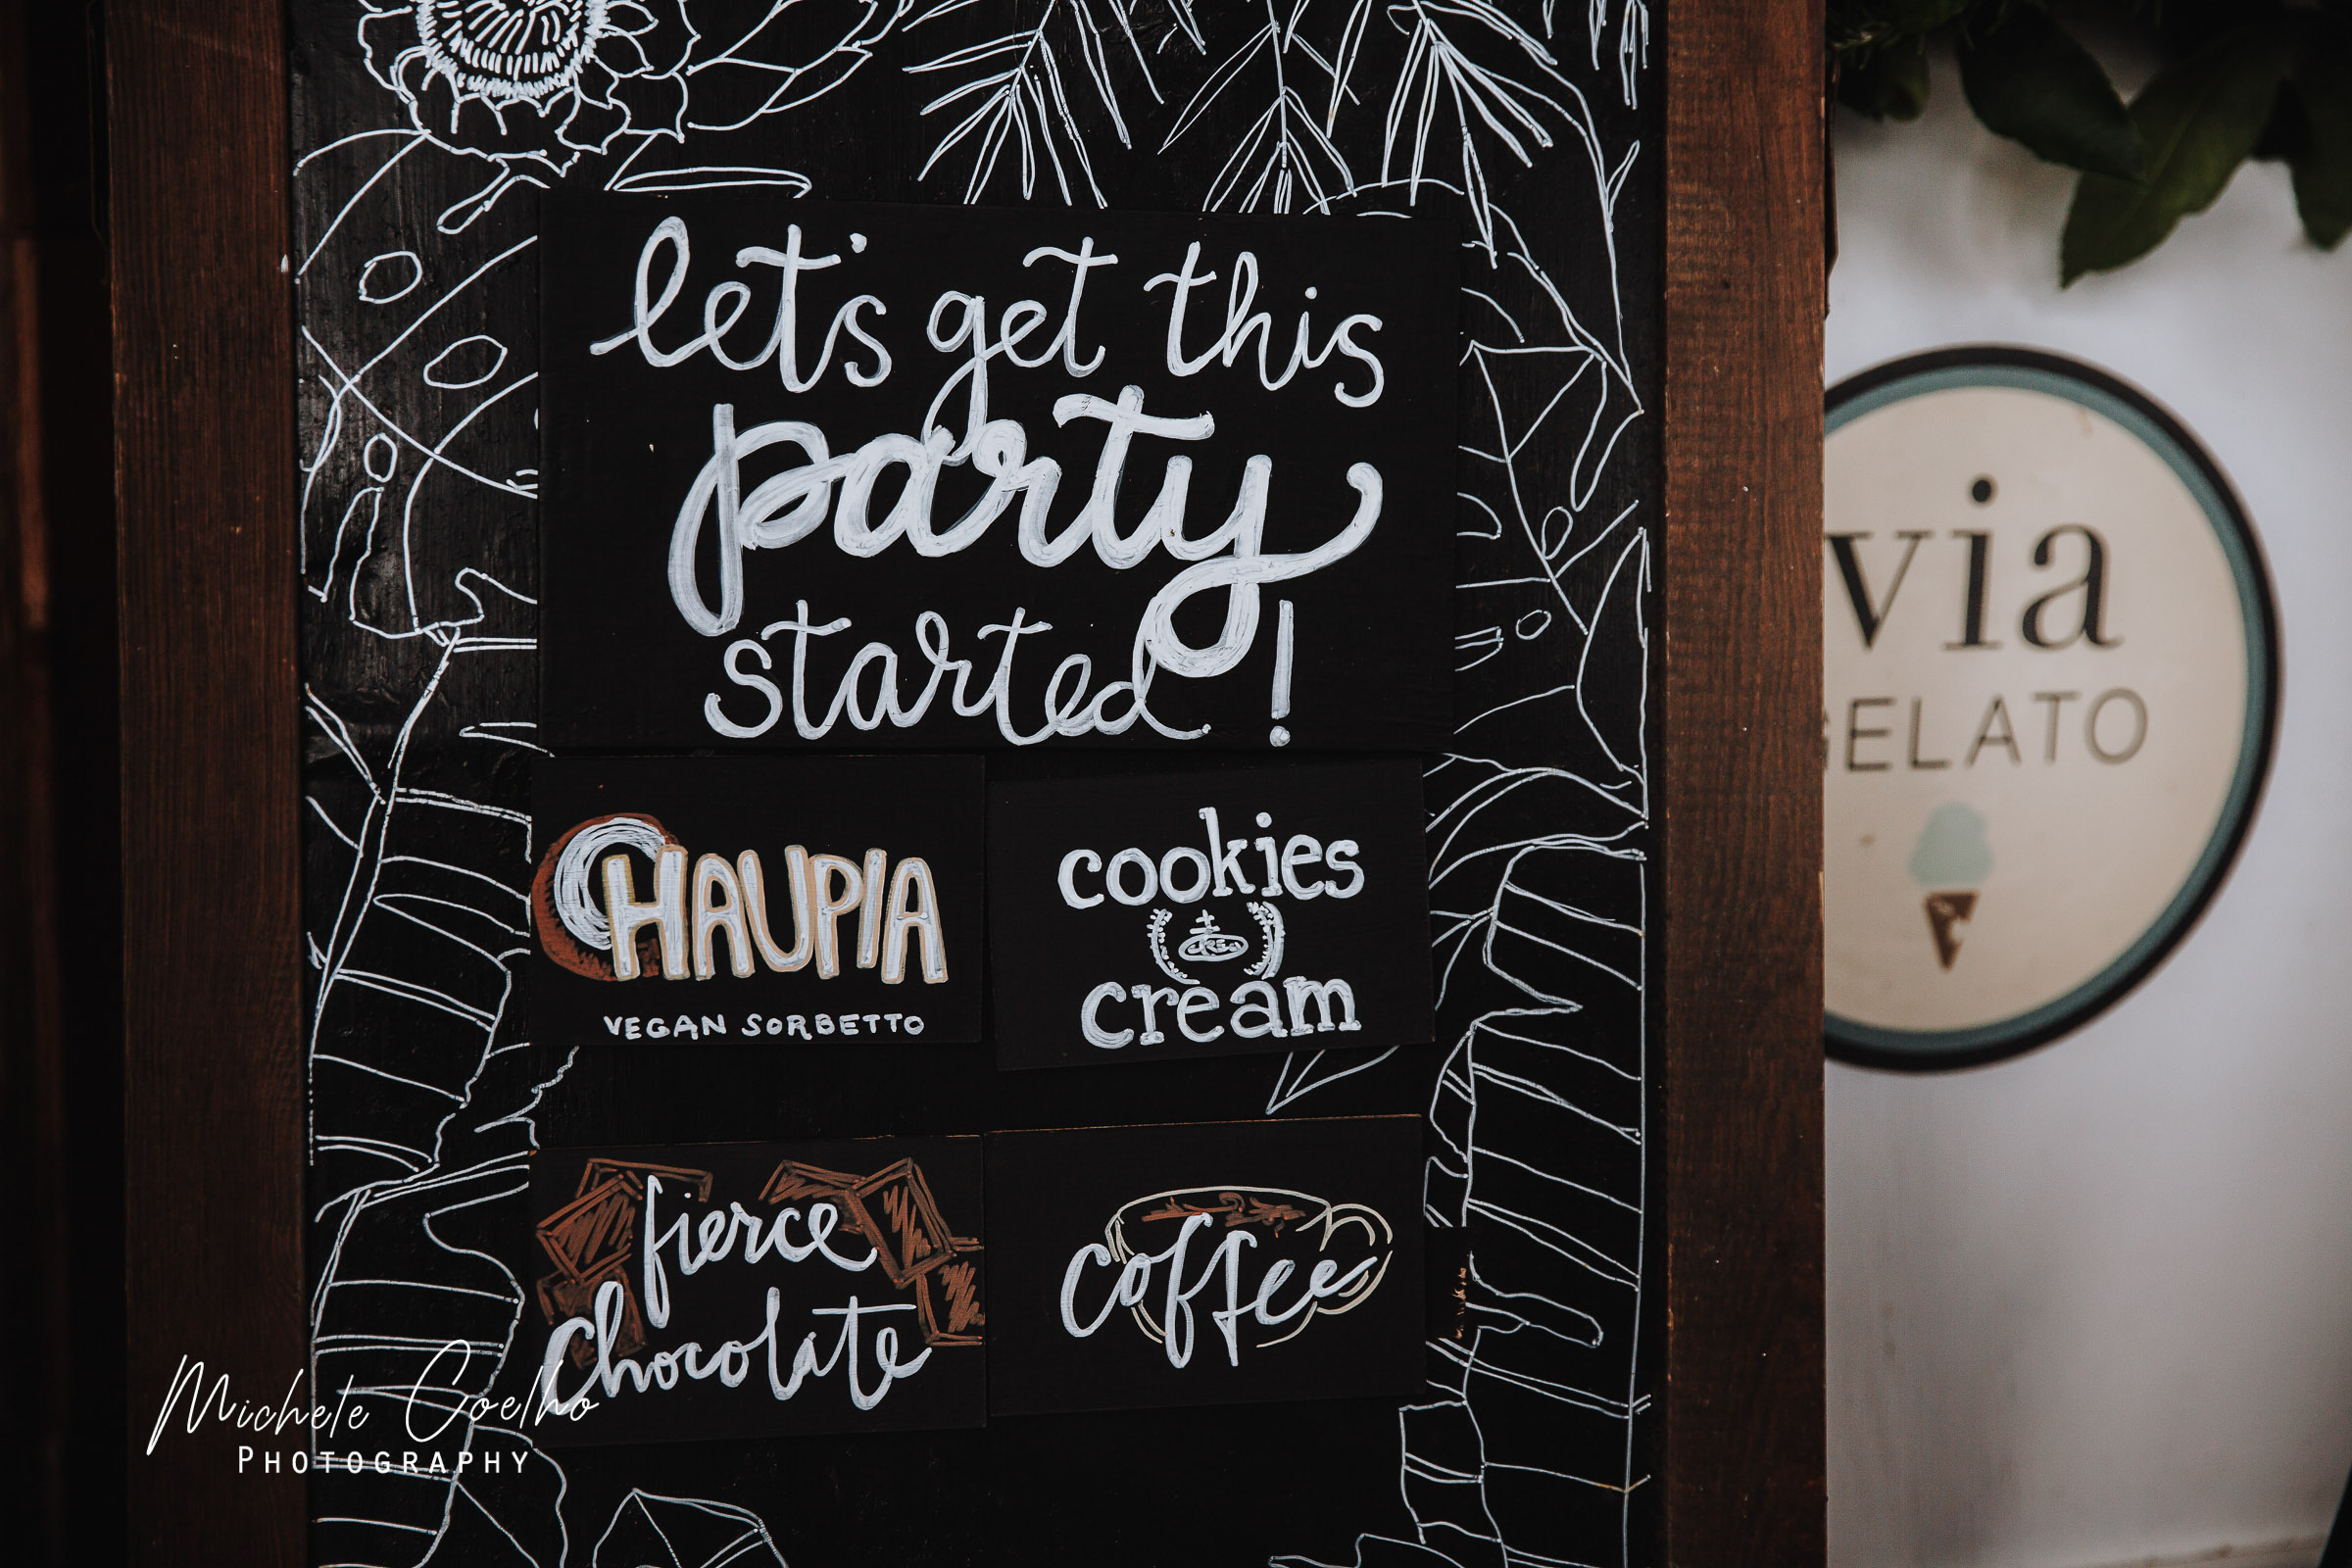 let's get this
party
started!
HAUPIA
VEGAN SORBETTO
cookies
cream
fierce
chocolate
coffee
via
GELATO
Michele Coelho
PHOTOGRAPHY